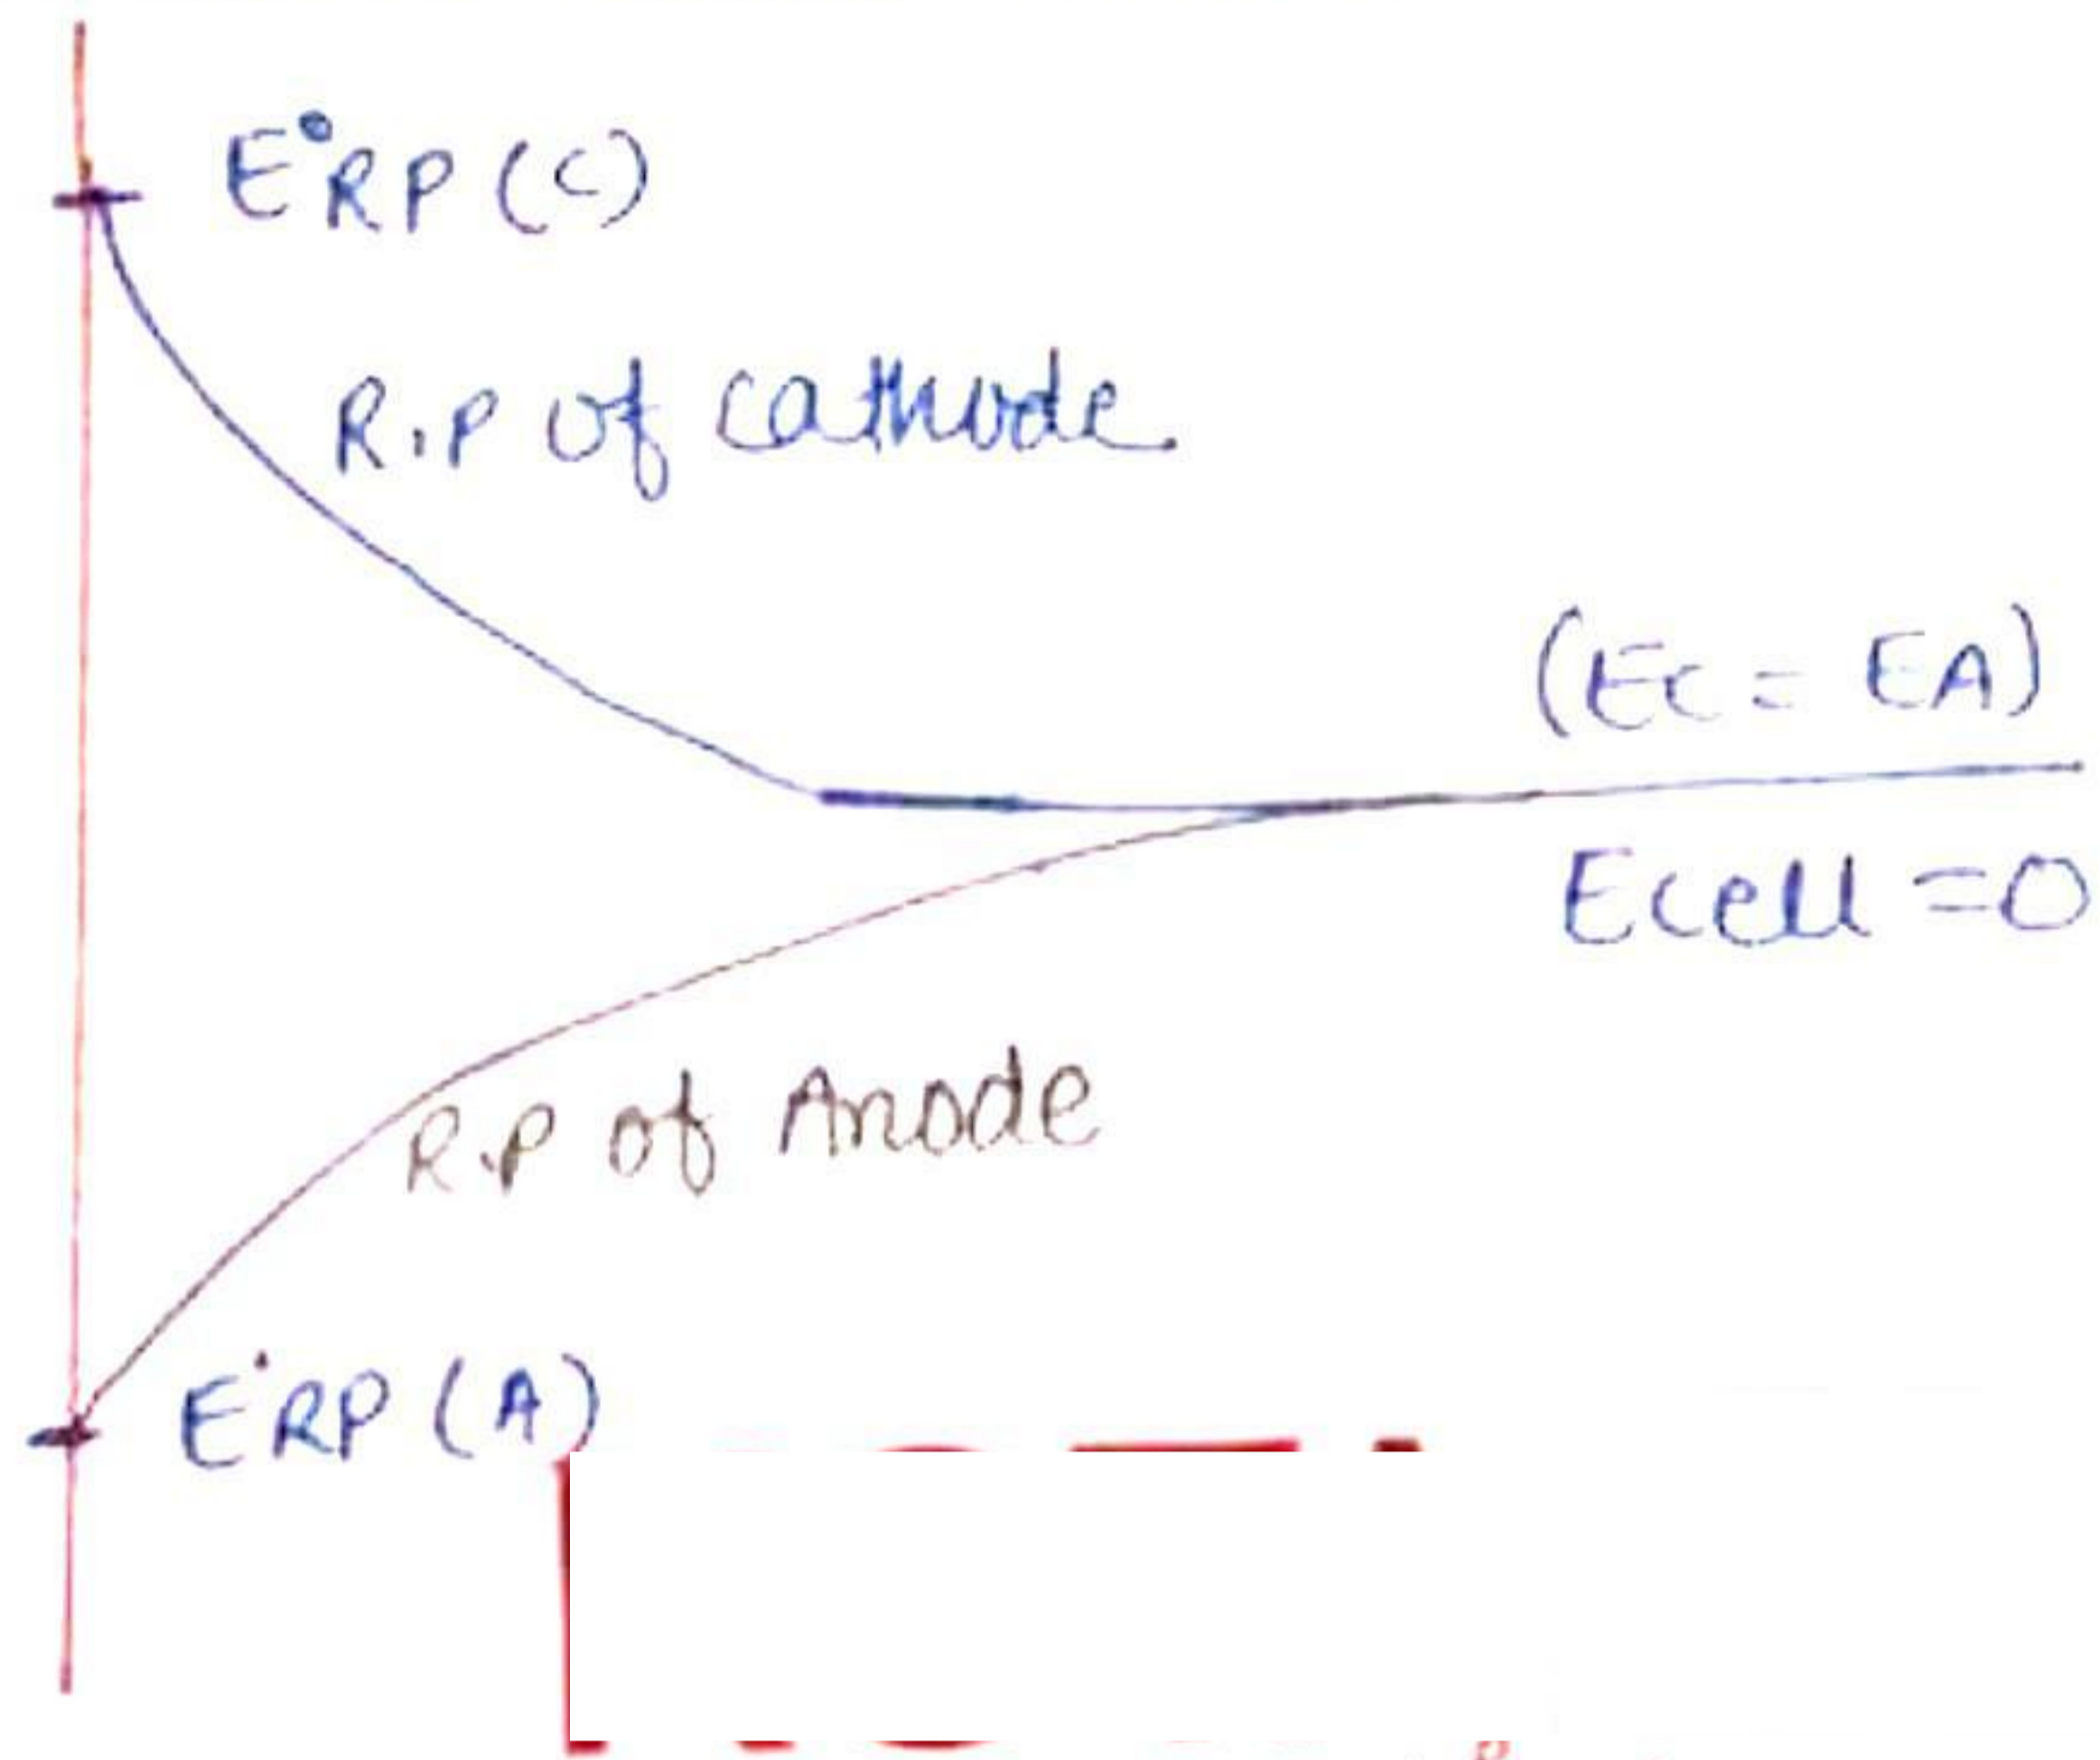 E°RP (C)
R.P of cathode
(EC = EA)
Ecell = 0
R.P of Anode
E°RP (A)